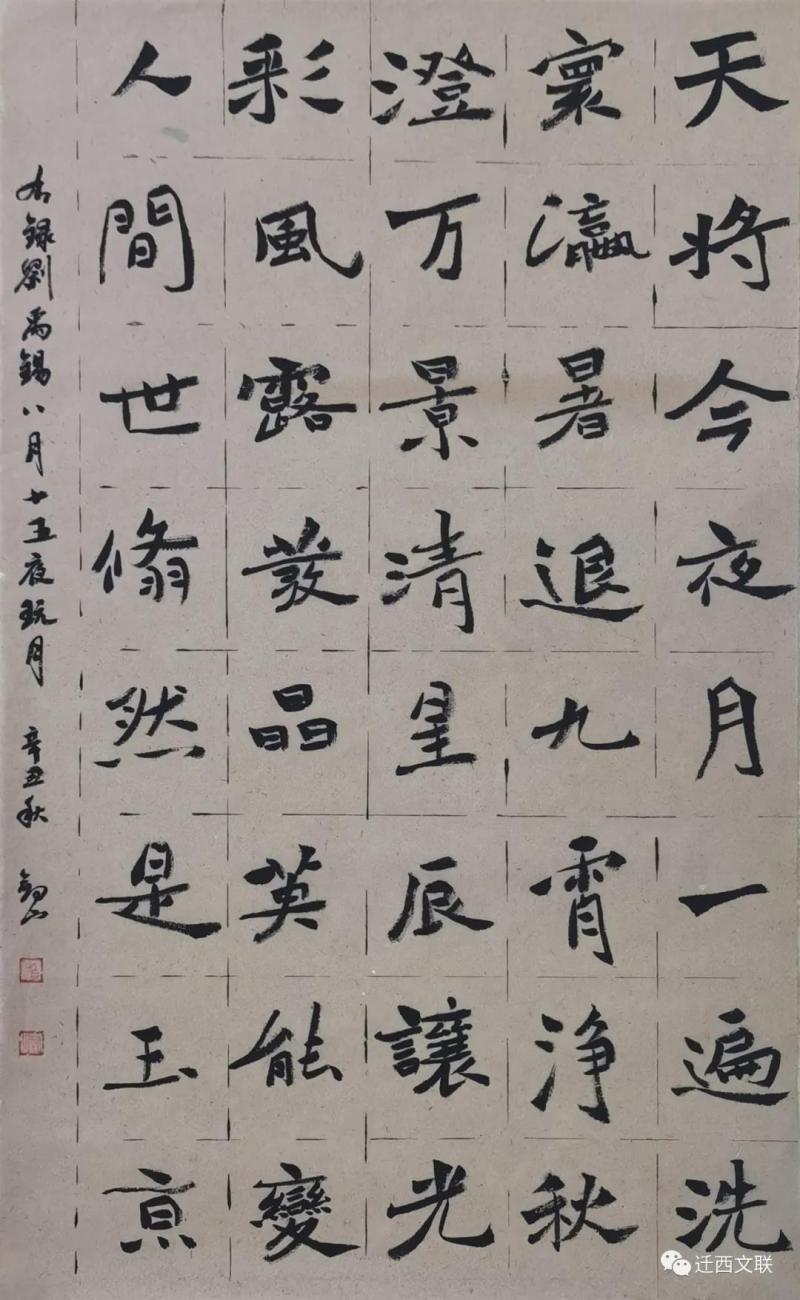 天将今夜月一遍洗
寰瀛暑退九霄净秋
澄万景清星辰讓光
彩風露發晶英能變
人間世翛然是玉京
右録劉禹錫八月十五夜玩月 辛丑秋
迁西文联